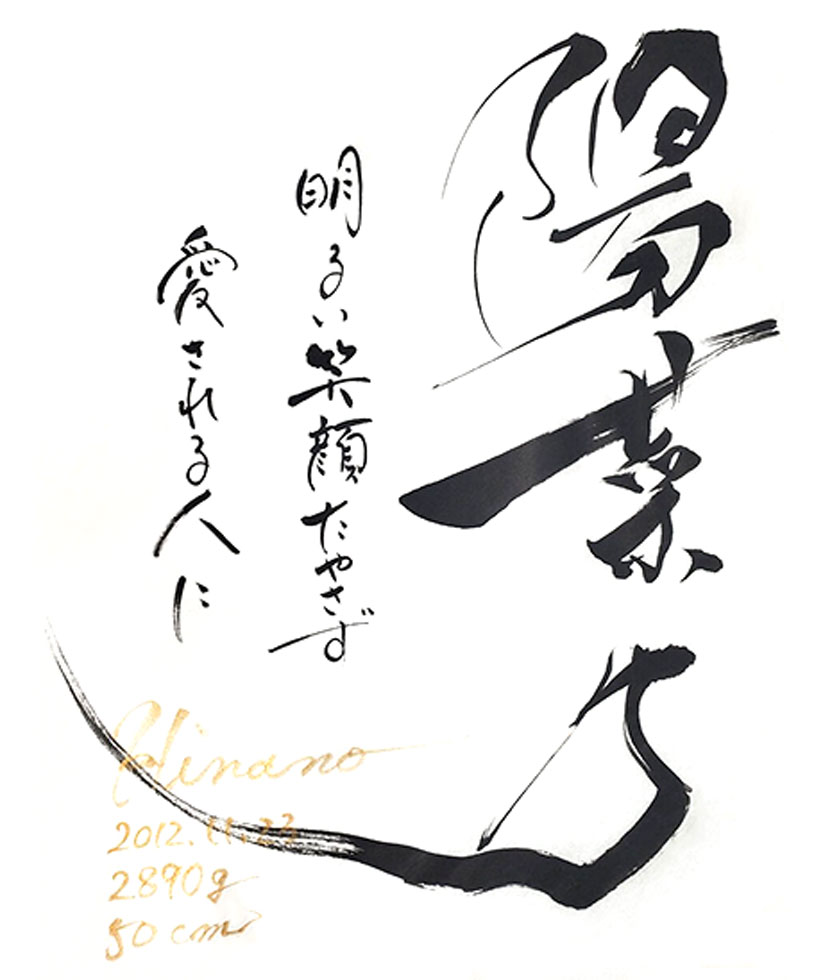 陽菜乃
明るい笑顔たやさず
愛される人に
Hinano
2012.11.23
2890g
50cm